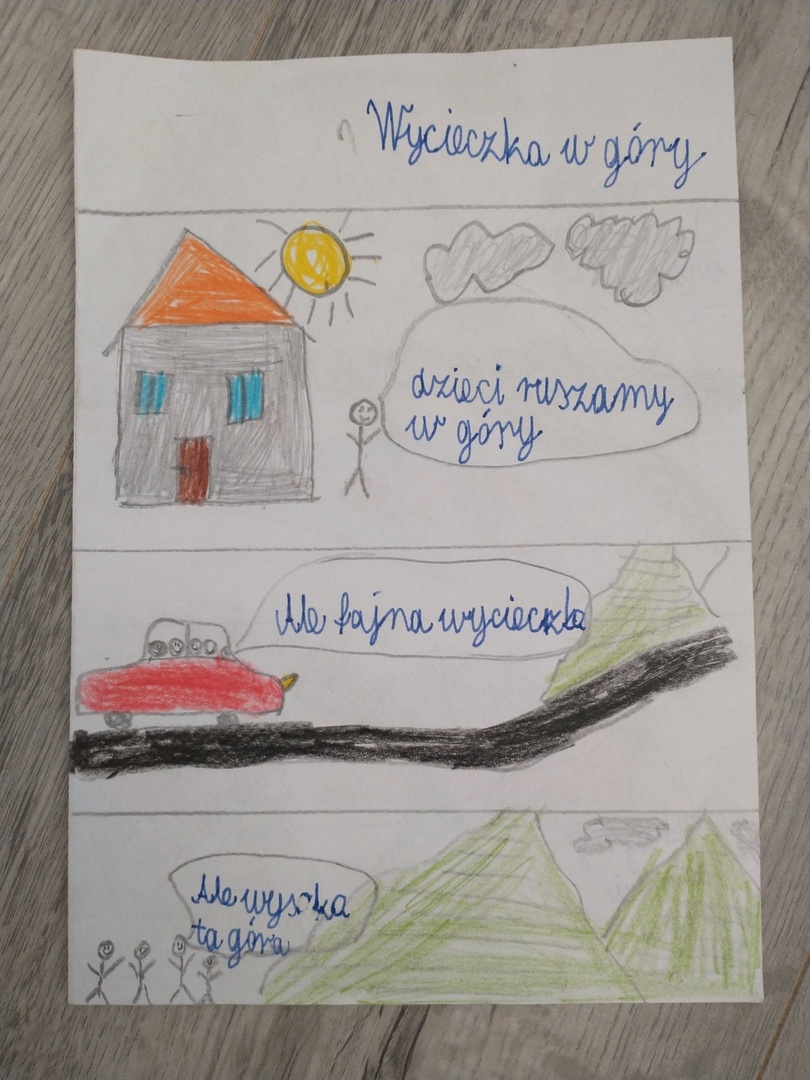 Wycieczka w góry
dzieci ruszamy
w góry
Ale fajna wycieczka
Ale wysoka
ta góra